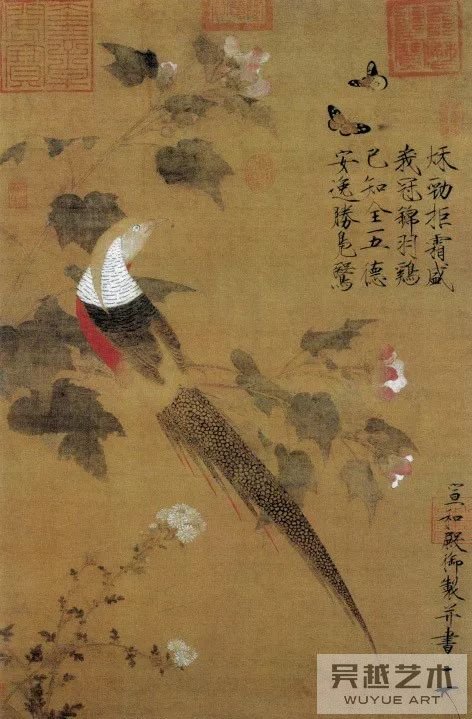 秋勁拒霜盛
峩冠錦羽鷄
已知全五德
安逸勝鳧鷖
宣和殿御製并書
吴越艺术
WUYUE ART